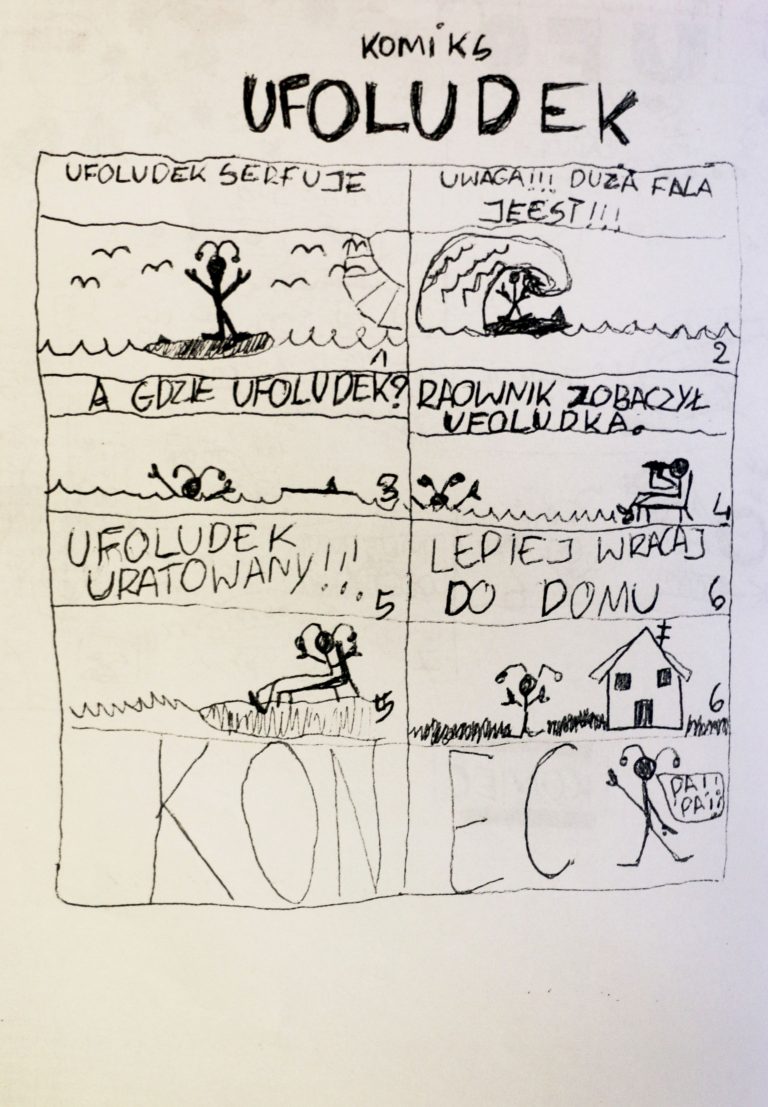 KOMIKS
UFOLUDEK
UFOLUDEK SERFUJE
1
UWAGA!!! DUŻA FALA
JEEST!!!
2
A GDZIE UFOLUDEK?
3
RAOWNIK ZOBACZYŁ
UFOLUDKA.
4
UFOLUDEK
URATOWANY!!!
5
5
LEPIEJ WRACAJ
DO DOMU
6
6
KONIEC
PA!!
PA!!